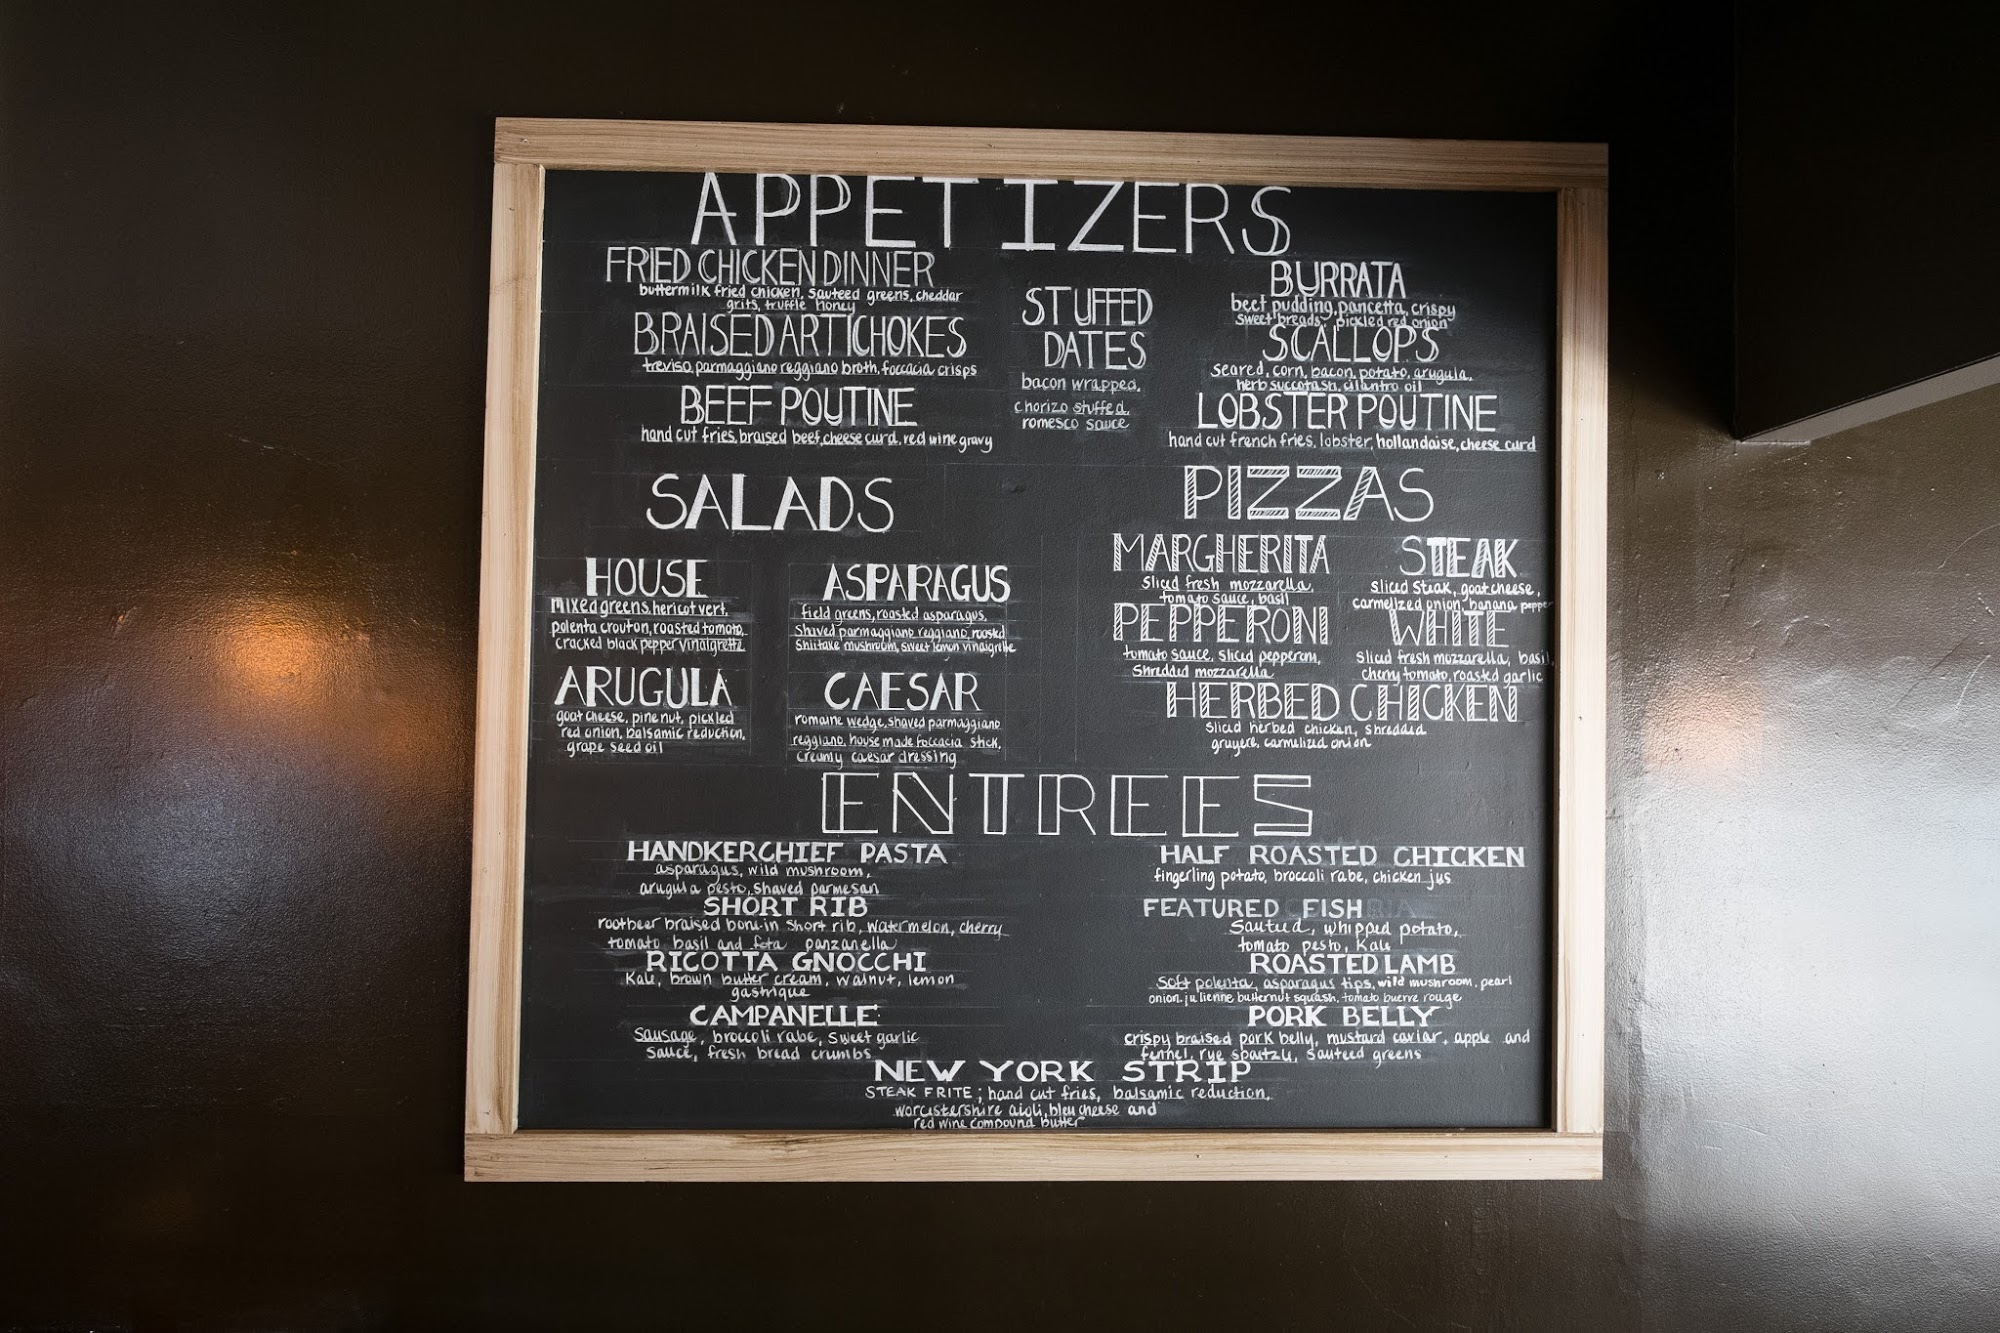 APPETIZERS
FRIED CHICKEN DINNER
buttermilk fried chicken, sauteed greens, cheddar
grits, truffle honey
BRAISED ARTICHOKES
treviso, parmaggiano reggiano broth, foccacia crisps
BEEF POUTINE
hand cut fries, braised beef, cheese curd, red wine gravy
STUFFED
DATES
bacon wrapped,
chorizo stuffed,
romesco sauce
BURRATA
beet pudding, pancetta, crispy
sweet breads, pickled red onion
SCALLOPS
seared, corn, bacon, potato, arugula,
herb succotash, cilantro oil
LOBSTER POUTINE
hand cut french fries, lobster, hollandaise, cheese curd
SALADS
HOUSE
mixed greens, hericot vert,
polenta crouton, roasted tomato,
cracked black pepper vinaigrette
ASPARAGUS
field greens, roasted asparagus,
shaved parmaggiano reggiano, roasted
shiitake mushroom, sweet lemon vinaigrette
ARUGULA
goat cheese, pine nut, pickled
red onion, balsamic reduction,
grape seed oil
CAESAR
romaine wedge, shaved parmaggiano
reggiano, house made foccacia stick,
creamy caesar dressing
PIZZAS
MARGHERITA
sliced fresh mozzarella,
tomato sauce, basil
STEAK
sliced steak, goat cheese,
carmelized onion, banana pepper
PEPPERONI
tomato sauce, sliced pepperoni,
shredded mozzarella
WHITE
sliced fresh mozzarella, basil,
cherry tomato, roasted garlic
HERBED CHICKEN
sliced herbed chicken, shredded
gruyere, carmelized onion
ENTREES
HANDKERCHIEF PASTA
asparagus, wild mushroom,
arugula pesto, shaved parmesan
SHORT RIB
rootbeer braised bone-in short rib, watermelon, cherry
tomato basil and feta panzanella
RICOTTA GNOCCHI
kale, brown butter cream, walnut, lemon
gastrique
CAMPANELLE
sausage, broccoli rabe, sweet garlic
sauce, fresh bread crumbs
HALF ROASTED CHICKEN
fingerling potato, broccoli rabe, chicken jus
FEATURED FISH
sauteed, whipped potato,
tomato pesto, kale
ROASTED LAMB
soft polenta, asparagus tips, wild mushroom, pearl
onion, julienne butternut squash, tomato buerre rouge
PORK BELLY
crispy braised pork belly, mustard caviar, apple and
fennel, rye spatzu, sauteed greens
NEW YORK STRIP
STEAK FRITE; hand cut fries, balsamic reduction,
worcistershire aioli, bleu cheese and
red wine compound butter